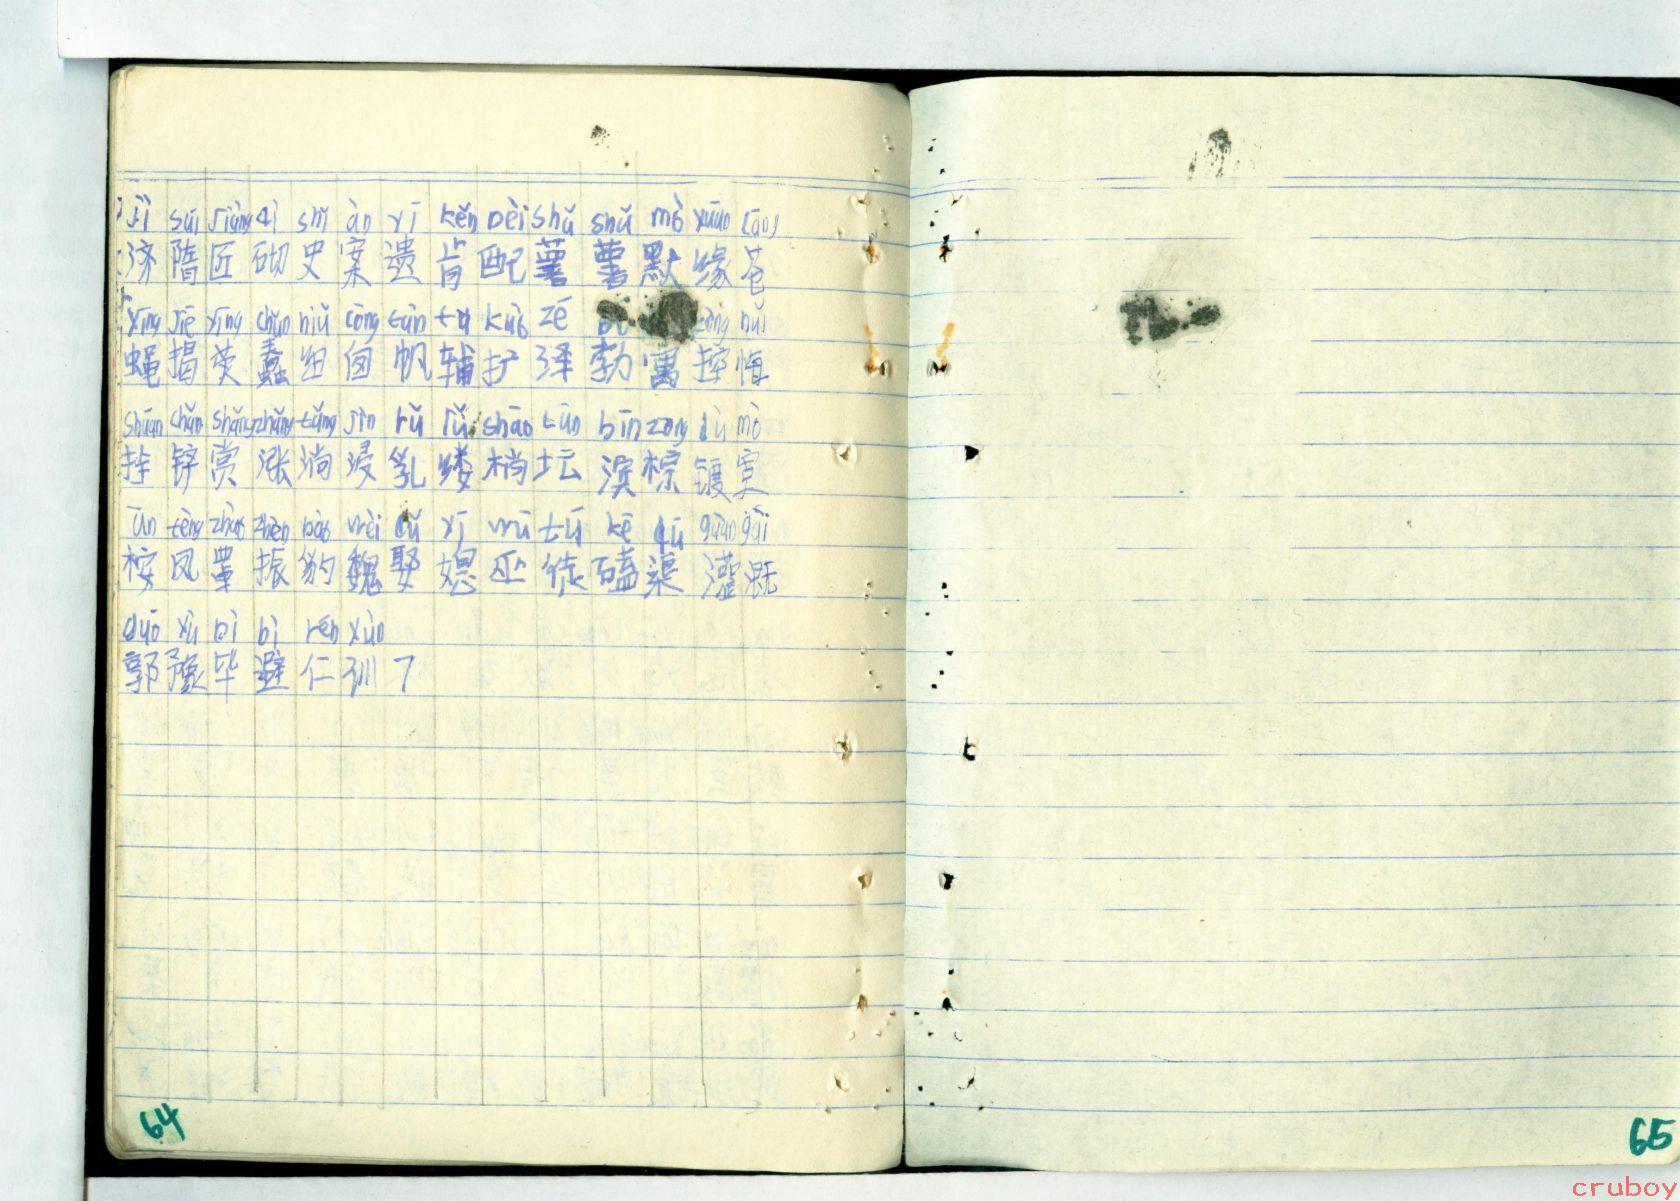 jì suí jiàng qì shǐ àn yí kěn pèi shǔ shǔ mò yuán
济 隋 匠 砌 史 案 遗 肯 配 薯 薯 默 缘 苍
yíng jiē yíng chǔn niǔ cōng kuò zé
蝇 揭 荧 蠢 纽 囱 帆 辅 扩 泽 勃 寓 控 悔
shuān shǎng zhǎng tǎng jìn rǔ lǚ shāo tán bīn zōng dù mò
拴 锌 赏 涨 淌 浸 乳 缕 梢 坛 滨 棕 镀 寞
ān zhèn bào wèi qǔ xí wū tú kē qú guàn gài
桉 凤 董 振 豹 魏 娶 媳 巫 徒 磕 渠 灌 溉
bì rén xùn
郭 豫 毕 避 仁 训 了
64
65
cruboy